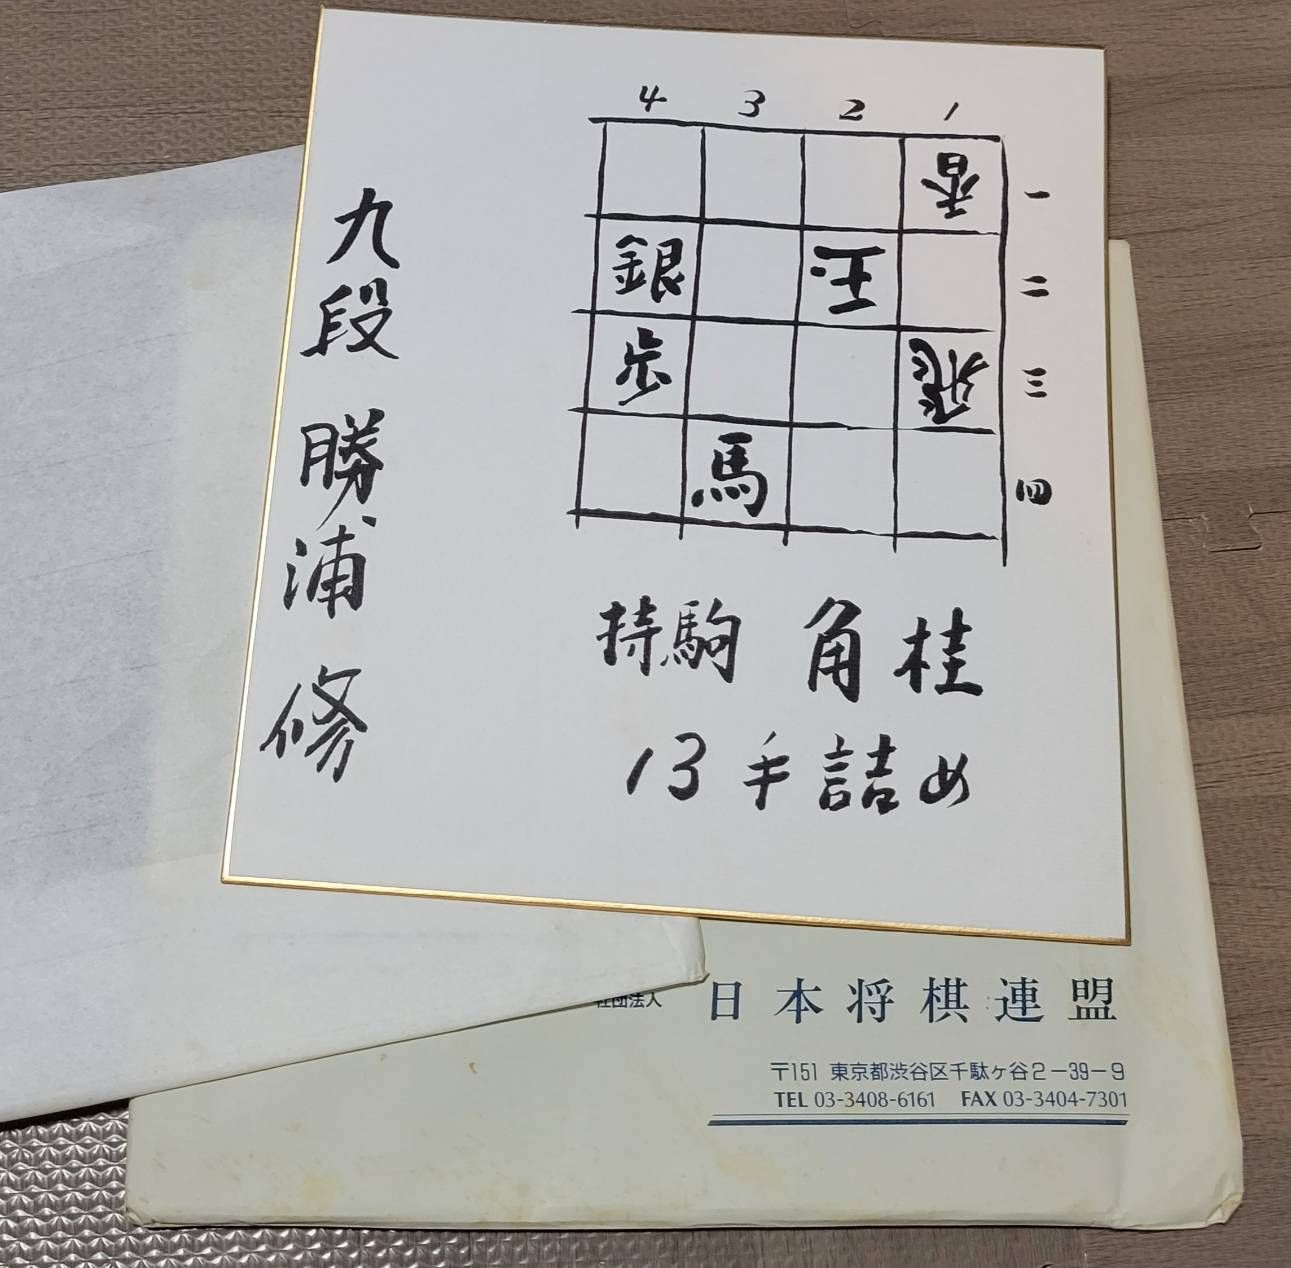 4 3 2 1
香 一
銀 玉 二
歩 飛 三
馬 四
持駒 角桂
13手詰め
九段 勝浦 修
社団法人 日本将棋連盟
〒151 東京都渋谷区千駄ヶ谷2-39-9
TEL 03-3408-6161 FAX 03-3404-7301